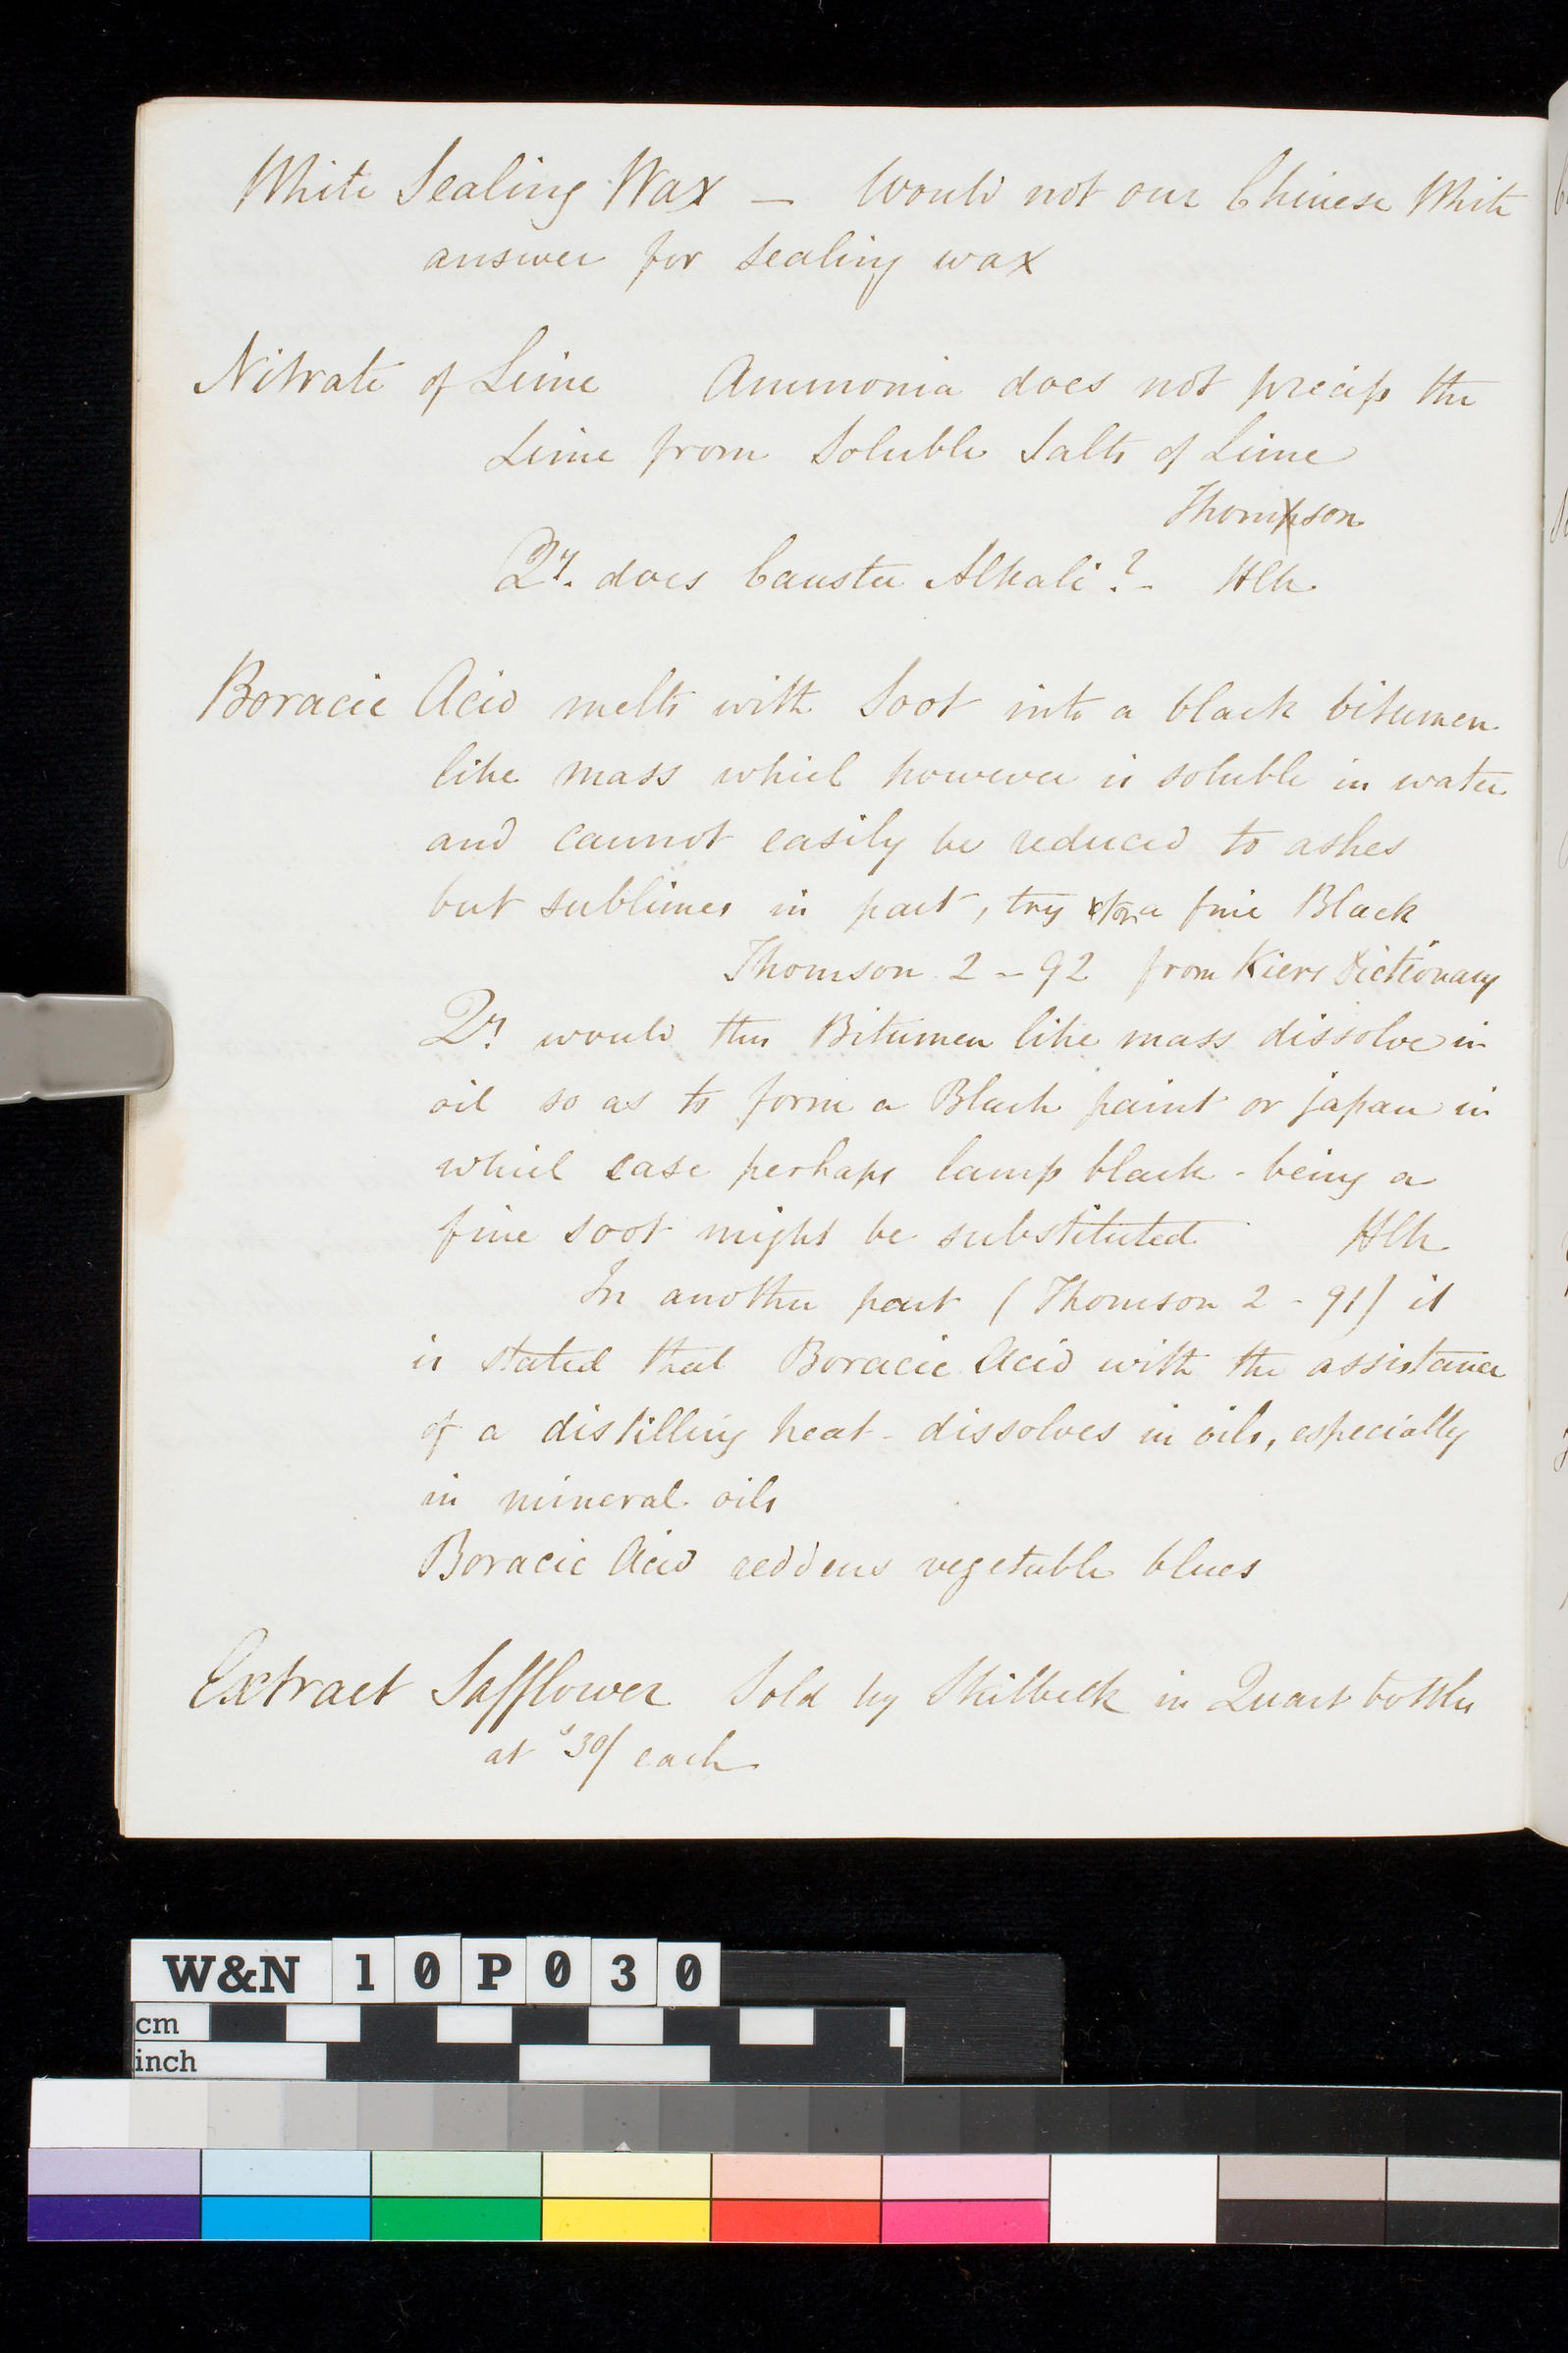 White Sealing Wax — Would not our Chinese White
answer for sealing wax
Nitrate of Lime Ammonia does not precip the
Lime from Soluble Salts of Lime
Thompson
Qy. does Caustic Alkali? - HCh
Boracic Acid melts with Soot into a black bitumen
like mass which however is soluble in water
and cannot easily be reduced to ashes
but sublimes in part, try for a fine Black
Thomson 2 - 92 from Kiers Dictionary
Qy would this Bitumen like mass dissolve in
oil so as to form a Black paint or japan in
which case perhaps lamp black - being a
fine soot might be substituted HCh
In another part (Thomson 2 - 91) it
is stated that Boracic Acid with the assistance
of a distilling heat - dissolves in oils, especially
in mineral oils
Boracic Acid reddens vegetable blues
Extract Safflower Sold by Skilbeck in Quart bottles
at s30/ each
W&N 10P030
cm
inch